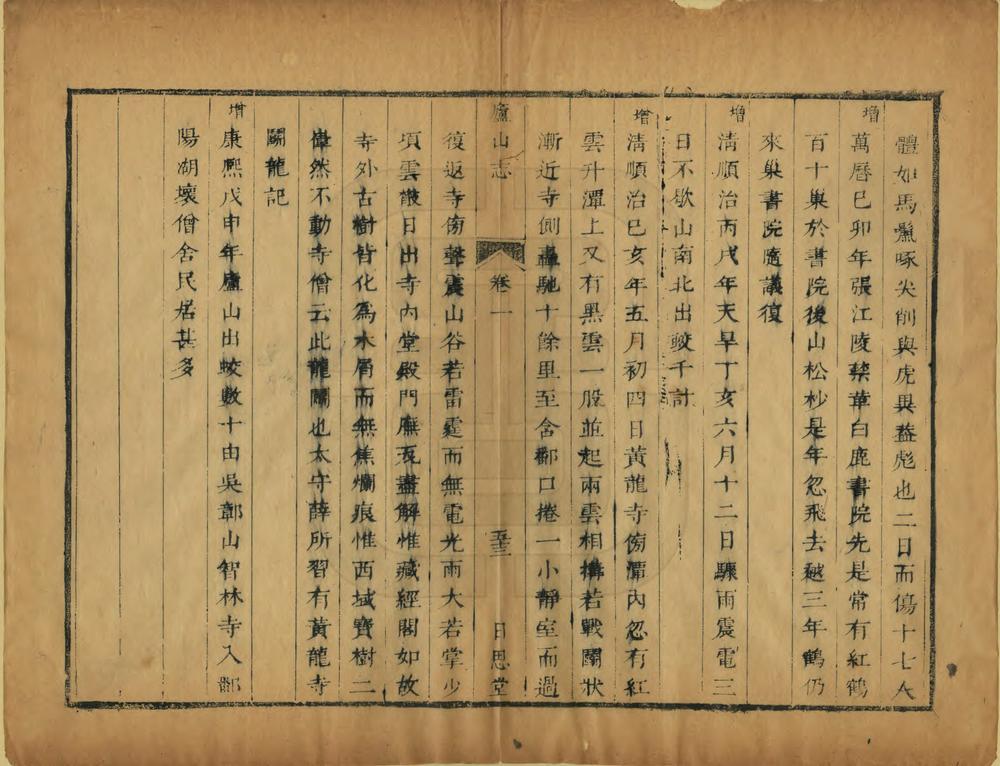 體如馬鬣啄尖削與虎異蓋彪也二日而傷十七人
增
萬曆己卯年張江陵廢華白鹿書院先是常有紅鶴
百十巢於書院後山松杪是年忽飛去越三年鶴仍
來巢書院隨議復
增
清順治丙戌年天旱丁亥六月十二日驟雨震電三
日不歇山南北出蛟千計
增
清順治己亥年五月初四日黃龍寺傍潭內忽有紅
雲升潭上又有黑雲一股並起兩雲相搆若戰鬭狀
漸近寺側轟馳十餘里至舍鄱口捲一小靜室而過
廬山志
卷一
五三
日思堂
復返寺傍聲震山谷若雷霆而無電光雨大若掌少
頃雲散日出寺內堂殿門廡瓦盡解惟藏經閣如故
寺外古樹皆化為木屑而無焦爛痕惟西域寶樹二
偉然不動寺僧云此龍鬭也太守薛所習有黃龍寺
鬭龍記
增
康熙戊申年廬山出蛟數十由吳鄣山智林寺入鄱
陽湖壞僧舍民居甚多